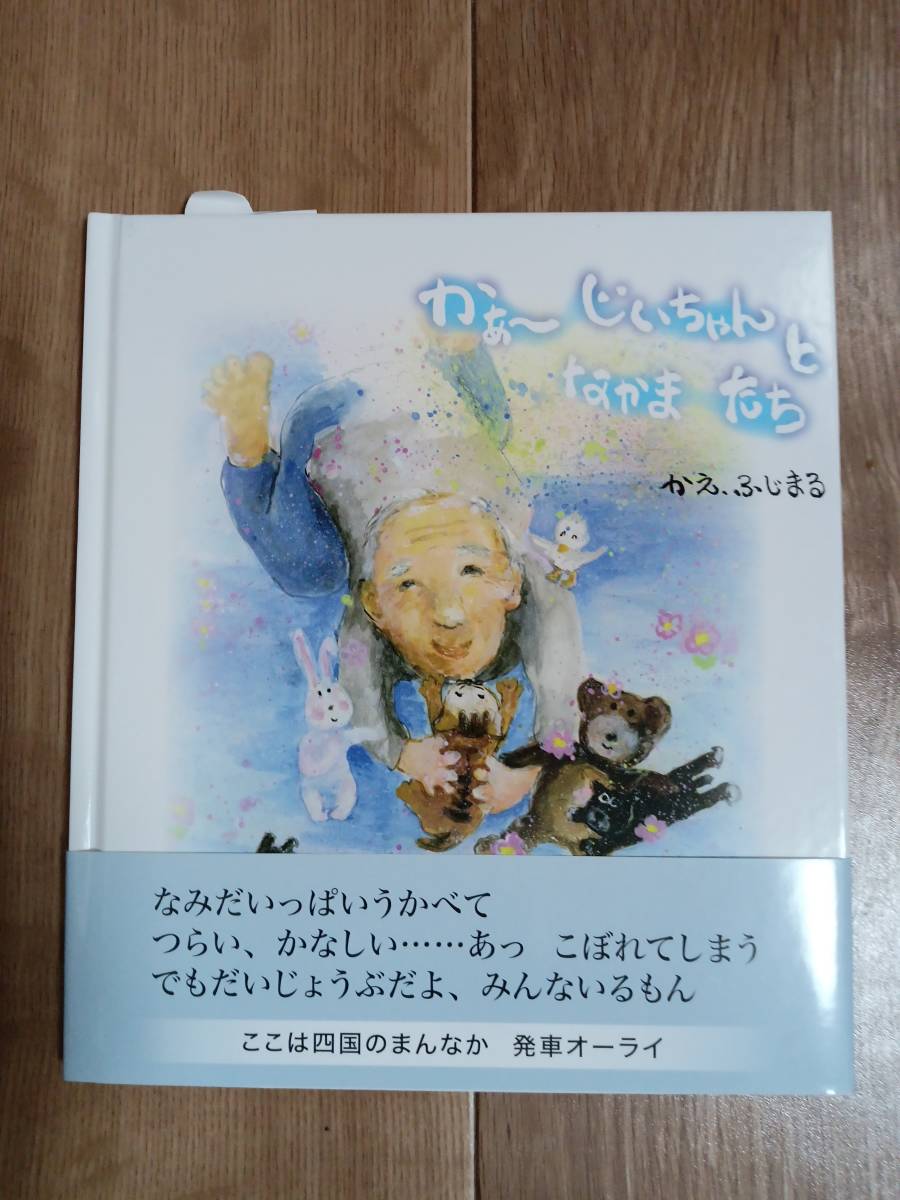 かぁ～ じぃちゃんと
なかま たち
かえ、ふじまる
なみだいっぱいうかべて
つらい、かなしい……あっ　こぼれてしまう
でもだいじょうぶだよ、みんないるもん
ここは四国のまんなか　発車オーライ